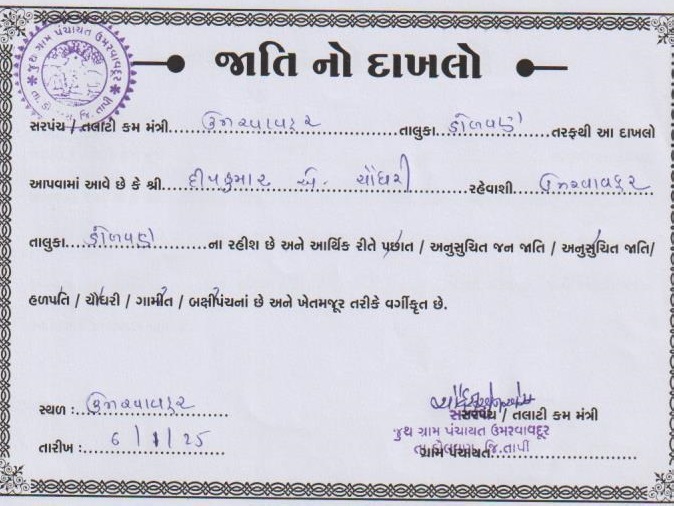 જુથ ગ્રામ પંચાયત ઉમરવાવદૂર
જિ. તાપી
જાતિ નો દાખલો
સરપંચ / તલાટી કમ મંત્રી ઉમરવાવદુર તાલુકા ડોલવણ તરફથી આ દાખલો
આપવામાં આવે છે કે શ્રી દીપકુમાર એ. ચૌધરી રહેવાશી ઉમરવાવદુર
તાલુકા ડોલવણ ના રહીશ છે અને આર્થિક રીતે પછાત / અનુસુચિત જન જાતિ / અનુસુચિત જાતિ/
હળપતિ / ચૌધરી / ગામીત / બક્ષીપંચનાં છે અને ખેતમજૂર તરીકે વર્ગીકૃત છે.
સ્થળ : ઉમરવાવદુર
તારીખ : 6/1/25
સરપંચ / તલાટી કમ મંત્રી
સરપંચ
જુથ ગ્રામ પંચાયત ઉમરવાવદૂર
તા. ડોલવણ, જિ.તાપી
ગ્રામ પંચાયત